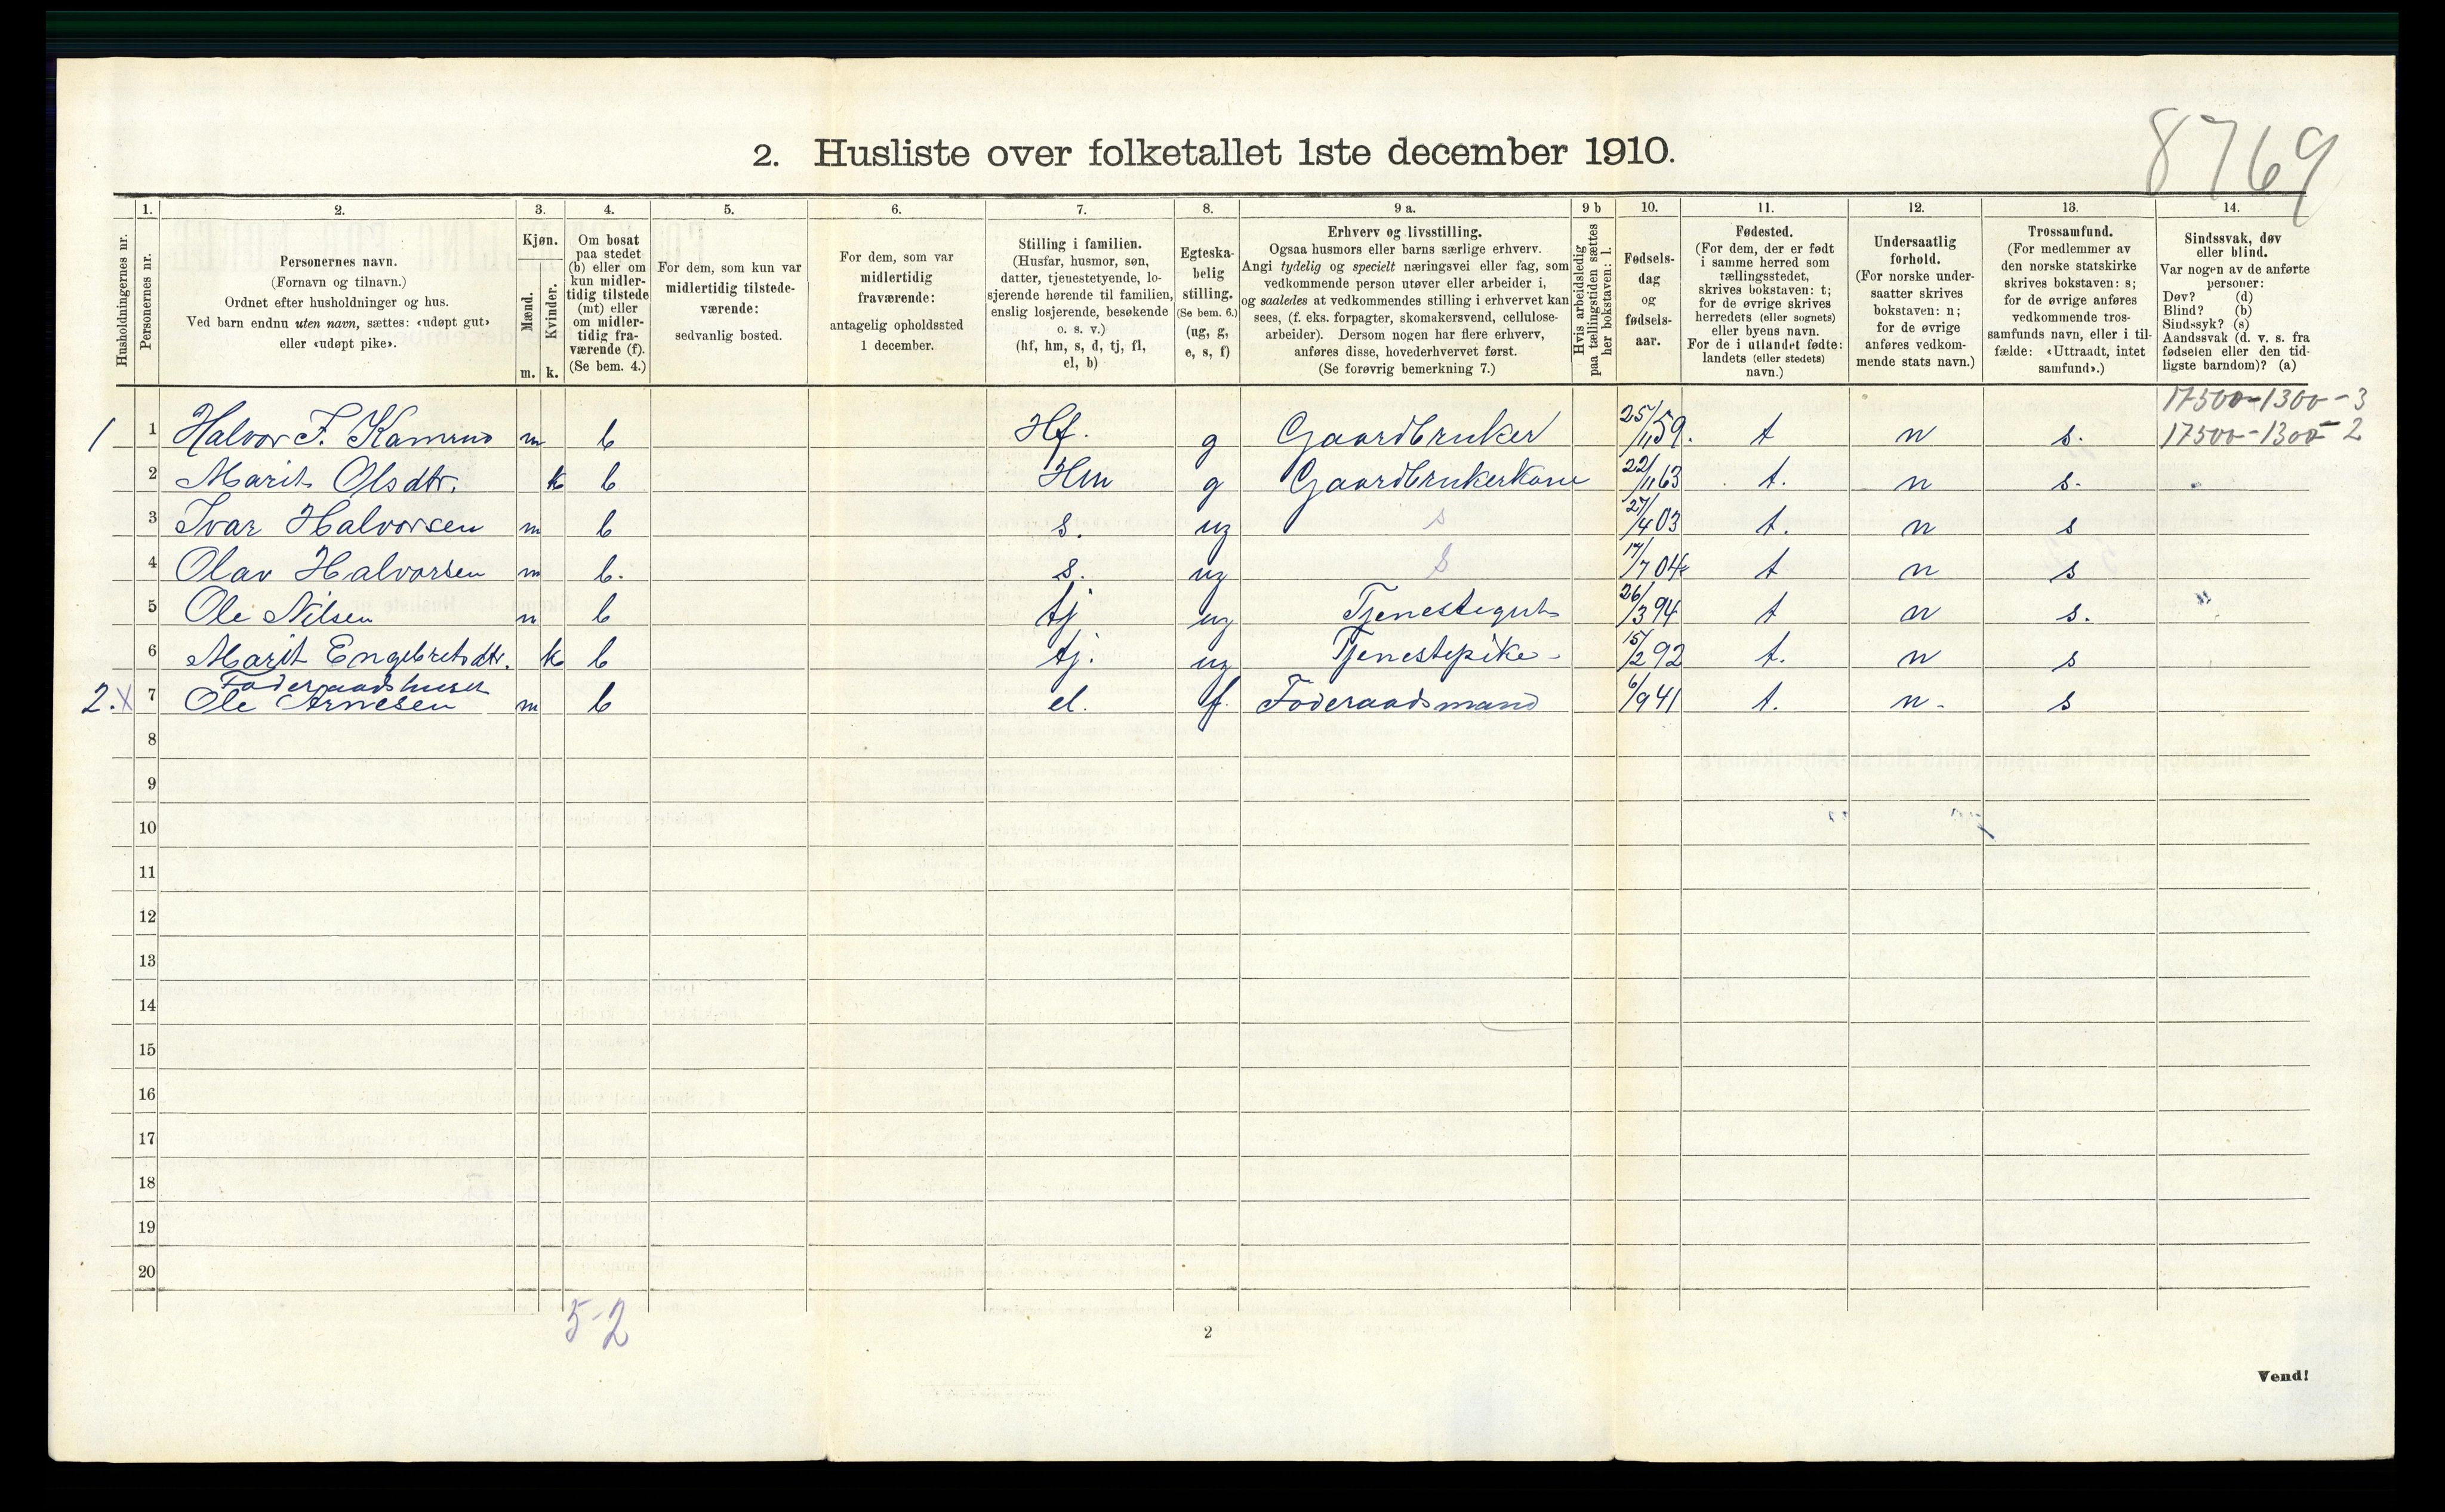 8769
2. Husliste over folketallet 1ste december 1910.
Husholdningernes nr.
1.
Personernes nr.
2.
Personernes navn.
(Fornavn og tilnavn.)
Ordnet efter husholdninger og hus.
Ved barn endnu uten navn, sættes: «udøpt gut»
eller «udøpt pike».
3.
Kjøn.
Mænd.
Kvinder.
m. k.
4.
Om bosat
paa stedet
(b) eller om
kun midler-
tidig tilstede
(mt) eller
om midler-
tidig fra-
værende (f).
(Se bem. 4.)
5.
For dem, som kun var
midlertidig tilstede-
værende:
sedvanlig bosted.
6.
For dem, som var
midlertidig
fraværende:
antagelig opholdssted
1 december.
7.
Stilling i familien.
(Husfar, husmor, søn,
datter, tjenestetyende, lo-
sjerende hørende til familien,
enslig losjerende, besøkende
o. s. v.)
(hf, hm, s, d, tj, fl,
el, b)
8.
Egteska-
belig
stilling.
(Se bem. 6.)
(ug, g,
e, s, f)
9 a.
Erhverv og livsstilling.
Ogsaa husmors eller barns særlige erhverv.
Angi tydelig og specielt næringsvei eller fag, som
vedkommende person utøver eller arbeider i,
og saaledes at vedkommendes stilling i erhvervet kan
sees, (f. eks. forpagter, skomakersvend, cellulose-
arbeider). Dersom nogen har flere erhverv,
anføres disse, hovederhvervet først.
(Se forøvrig bemerkning 7.)
9 b
Hvis arbeidsledig
paa tællingstiden sættes
her bokstaven: l.
10.
Fødsels-
dag
og
fødsels-
aar.
11.
Fødested.
(For dem, der er født
i samme herred som
tællingsstedet,
skrives bokstaven: t;
for de øvrige skrives
herredets (eller sognets)
eller byens navn.
For de i utlandet fødte:
landets (eller stedets)
navn.)
12.
Undersaatlig
forhold.
(For norske under-
saatter skrives
bokstaven: n;
for de øvrige
anføres vedkom-
mende stats navn.)
13.
Trossamfund.
(For medlemmer av
den norske statskirke
skrives bokstaven: s;
for de øvrige anføres
vedkommende tros-
samfunds navn, eller i til-
fælde: «Uttraadt, intet
samfund».)
14.
Sindssvak, døv
eller blind.
Var nogen av de anførte
personer:
Døv? (d)
Blind? (b)
Sindssyk? (s)
Aandssvak (d. v. s. fra
fødselen eller den tid-
ligste barndom)? (a)
17500-1300-3
1 1 Halvor F. Kamrud m b Hf. g Gaardbruker 25/11 59. t n s. 17500-1300-2
2 Marit Olsdtr. k b Hm g Gaardbrukerkone 22/11 63 t. n s.
3 Ivar Halvorsen m b s. ug s 27/4 03 t. n s
4 Olav Halvorsen m b. s. ug s 17/7 04 t n s
5 Ole Nilsen m b tj ug Tjenestegut 26/3 94 t n s.
6 Marit Engebretsdtr. k b tj. ug Tjenestepike 15/2 92 t. n s
Føderaadshuset
2. x 7 Ole Arnesen m b el. f. Føderaadsmand 6/9 41 t. n. s
8
9
10
11
12
13
14
15
16
17
18
19
20
5-2
2
Vend!